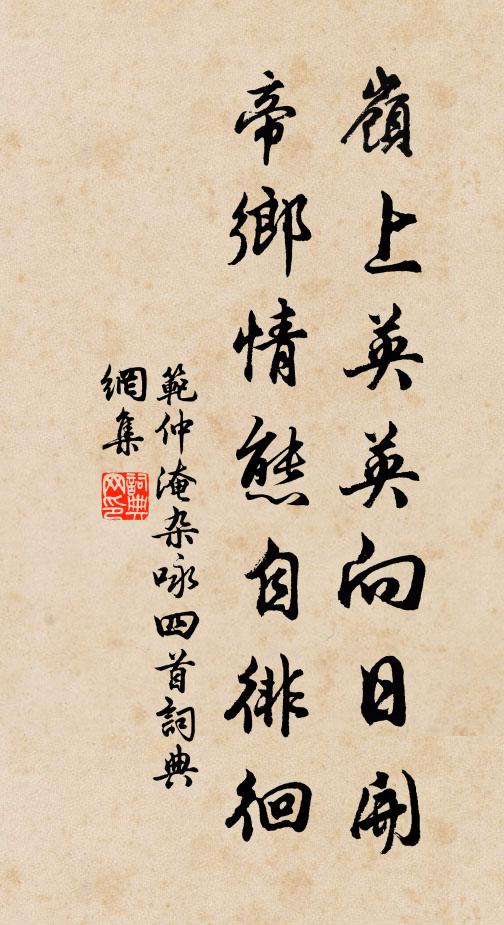 嶺上英英向日開
帝鄉情態自徘徊
範仲淹杂咏四首詞典
網集
詞典
网印